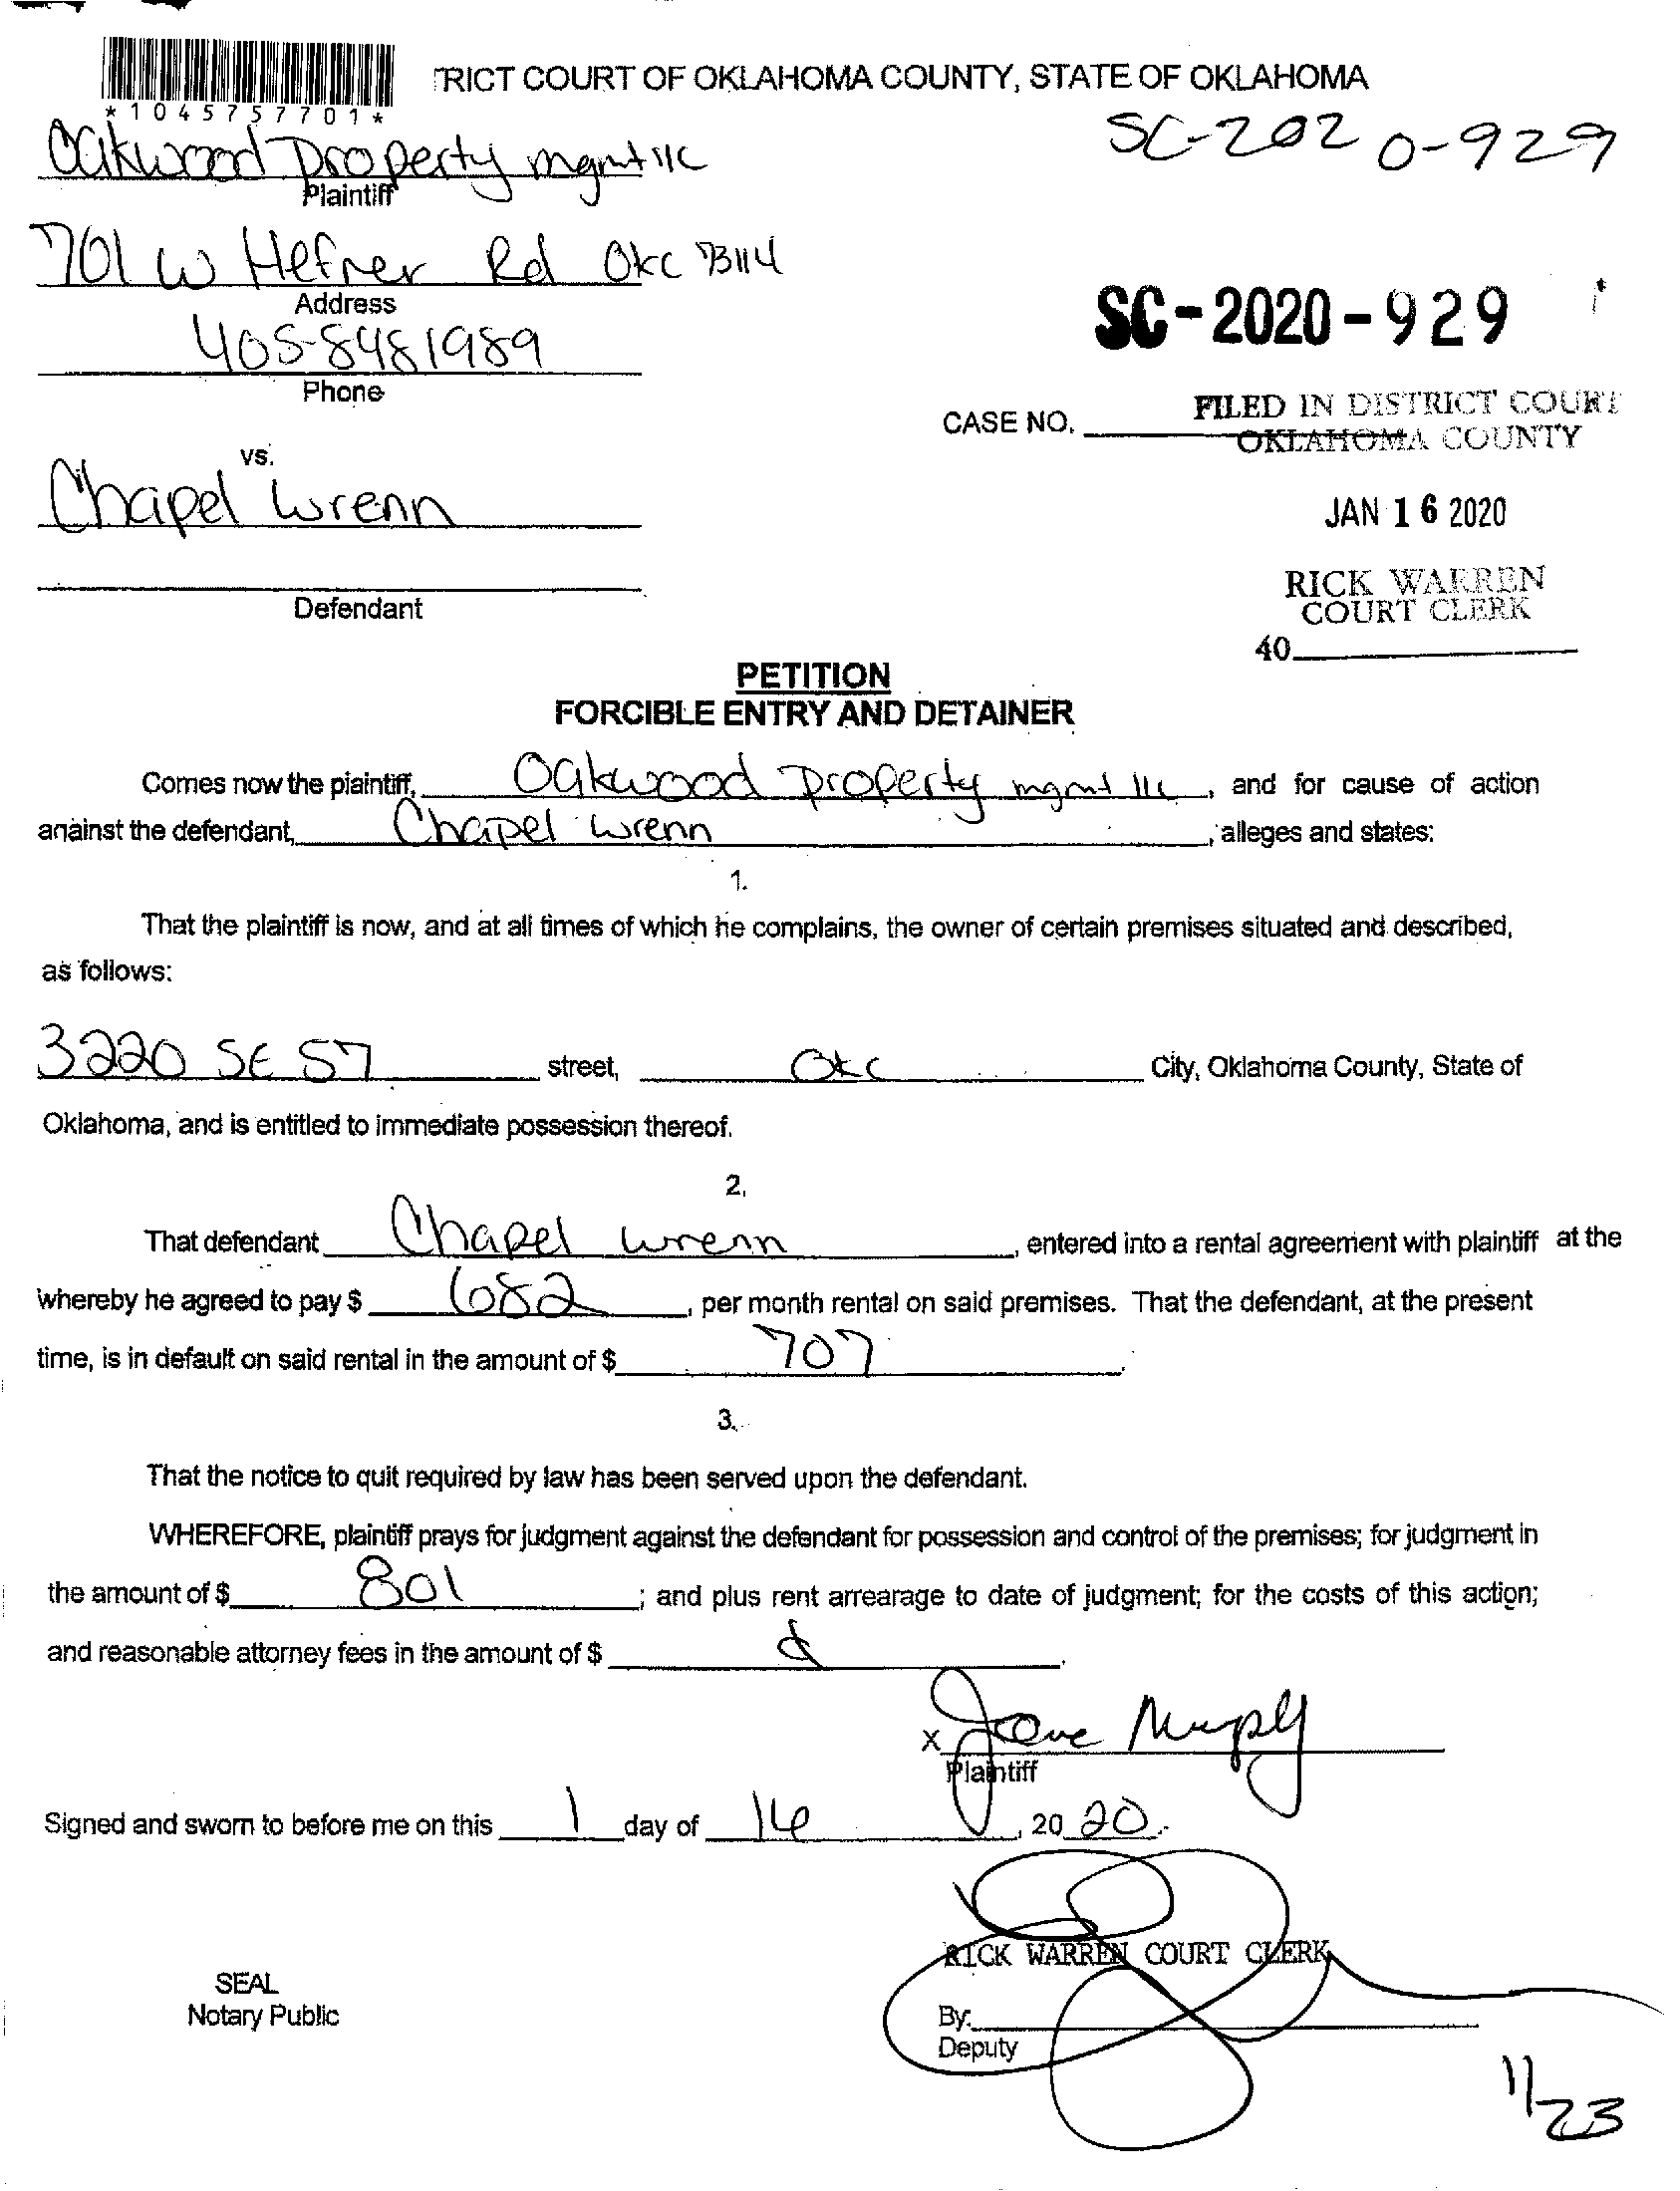 TRICT COURT OF OKLAHOMA COUNTY, STATE OF OKLAHOMA
*1045757701*
SC-2020-929
Oakwood Property mgmt llc
Plaintiff
701 W Hefner Rd Okc 73114
Address
SC-2020-929
405-8481989
Phone
CASE NO.
FILED IN DISTRICT COURT
OKLAHOMA COUNTY
vs.
Chapel Wrenn
JAN 16 2020
Defendant
RICK WARREN
COURT CLERK
40
PETITION
FORCIBLE ENTRY AND DETAINER
Comes now the plaintiff, Oakwood Property mgmt llc, and for cause of action
against the defendant, Chapel Wrenn, alleges and states:
1.
That the plaintiff is now, and at all times of which he complains, the owner of certain premises situated and described,
as follows:
3220 SE 57 street, Okc City, Oklahoma County, State of
Oklahoma, and is entitled to immediate possession thereof.
2.
That defendant Chapel Wrenn, entered into a rental agreement with plaintiff at the
whereby he agreed to pay $ 682, per month rental on said premises. That the defendant, at the present
time, is in default on said rental in the amount of $ 707.
3.
That the notice to quit required by law has been served upon the defendant.
WHEREFORE, plaintiff prays for judgment against the defendant for possession and control of the premises; for judgment in
the amount of $ 801; and plus rent arrearage to date of judgment; for the costs of this action;
and reasonable attorney fees in the amount of $
X
Plaintiff
Signed and sworn to before me on this 1 day of 16, 2020.
RICK WARREN COURT CLERK
SEAL
Notary Public
By:
Deputy
1/23